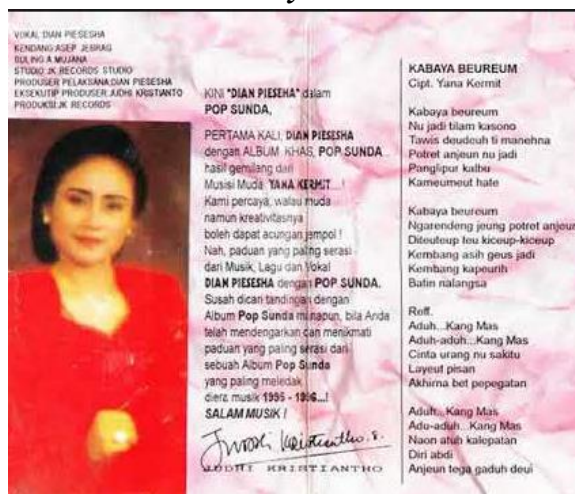 VOKAL DIAN PIESESHA
KENDANG ASEP JEBRAG
SULING A MUJANA
STUDIO JK RECORDS STUDIO
PRODUSER PELAKSANA DIAN PIESESHA
EKSEKUTIP PRODUSER JUDHI KRISTIANTO
PRODUKSI JK RECORDS
KINI "DIAN PIESEHA" dalam
POP SUNDA,
PERTAMA KALI, DIAN PIESESHA
dengan ALBUM KHAS, POP SUNDA
hasil gemilang dari
Musisi Muda, YANA KERMIT...!
Kami percaya, walau muda
namun kreativitasnya
boleh dapat acungan jempol !
Nah, paduan yang paling serasi
dari Musik, Lagu dan Vokal
DIAN PIESESHA dengan POP SUNDA.
Susah dicari tandingan dengan
Album Pop Sunda manapun, bila Anda
telah mendengarkan dan menikmati
paduan yang paling serasi dari
sebuah Album Pop Sunda
yang paling meledak
diera musik 1995 - 1996...!
SALAM MUSIK !
JUDHI KRISTIANTHO
KABAYA BEUREUM
Cipt. Yana Kermit
Kabaya beureum
Nu jadi tilam kasono
Tawis deudeuh ti manehna
Potret anjeun nu jadi
Panglipur kalbu
Kameumeut hate
Kabaya beureum
Ngarendeng jeung potret anjeun
Diteuteup teu kiceup-kiceup
Kembang asih geus jadi
Kembang kapeurih
Batin nalangsa
Reff.
Aduh...Kang Mas
Aduh-aduh...Kang Mas
Cinta urang nu sakitu
Layeut pisan
Akhirna bet pepegatan
Aduh...Kang Mas
Adu-aduh...Kang Mas
Naon atuh kalepatan
Diri abdi
Anjeun tega gaduh deui